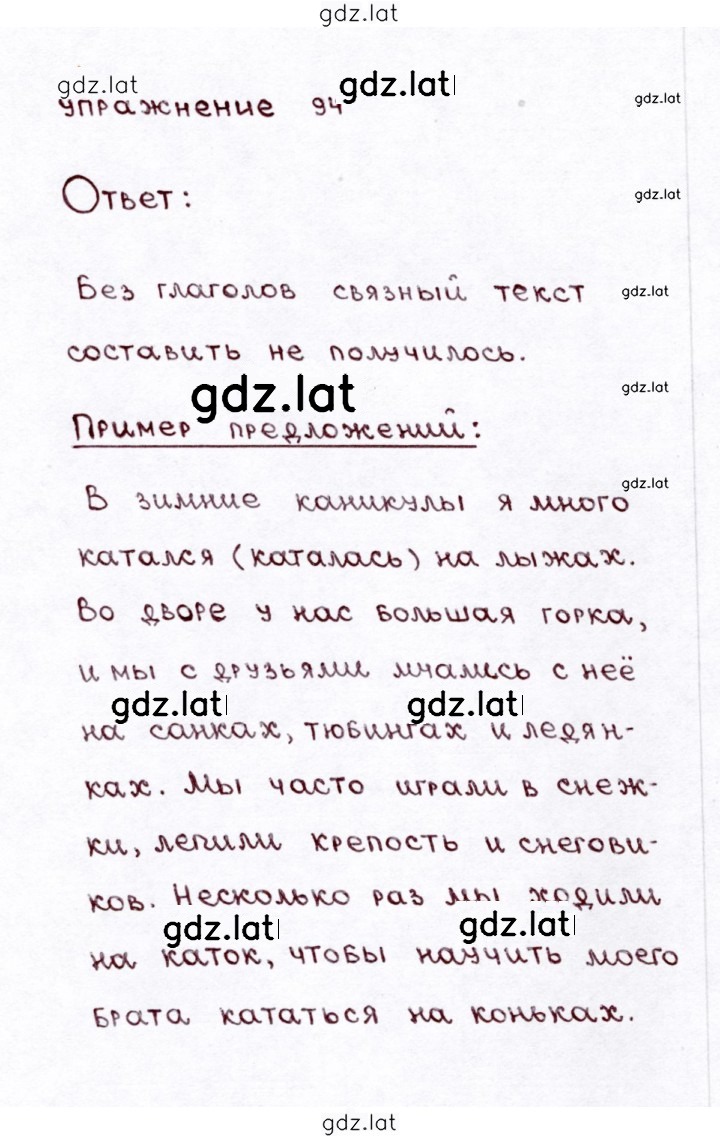 gdz.lat
gdz.lat gdz.lat gdz.lat
упражнение 94
Ответ: gdz.lat
Без глаголов связный текст gdz.lat
составить не получилось.
gdz.lat gdz.lat
Пример предложений:
gdz.lat
В зимние каникулы я много
катался (каталась) на лыжах.
Во дворе у нас большая горка,
и мы с друзьями мчались с неё
gdz.lat gdz.lat
на санках, тюбингах и ледян-
ках. Мы часто играли в снеж-
ки, лепили крепость и снегови-
ков. Несколько раз мы ходили
gdz.lat gdz.lat
на каток, чтобы научить моего
брата кататься на коньках.
gdz.lat